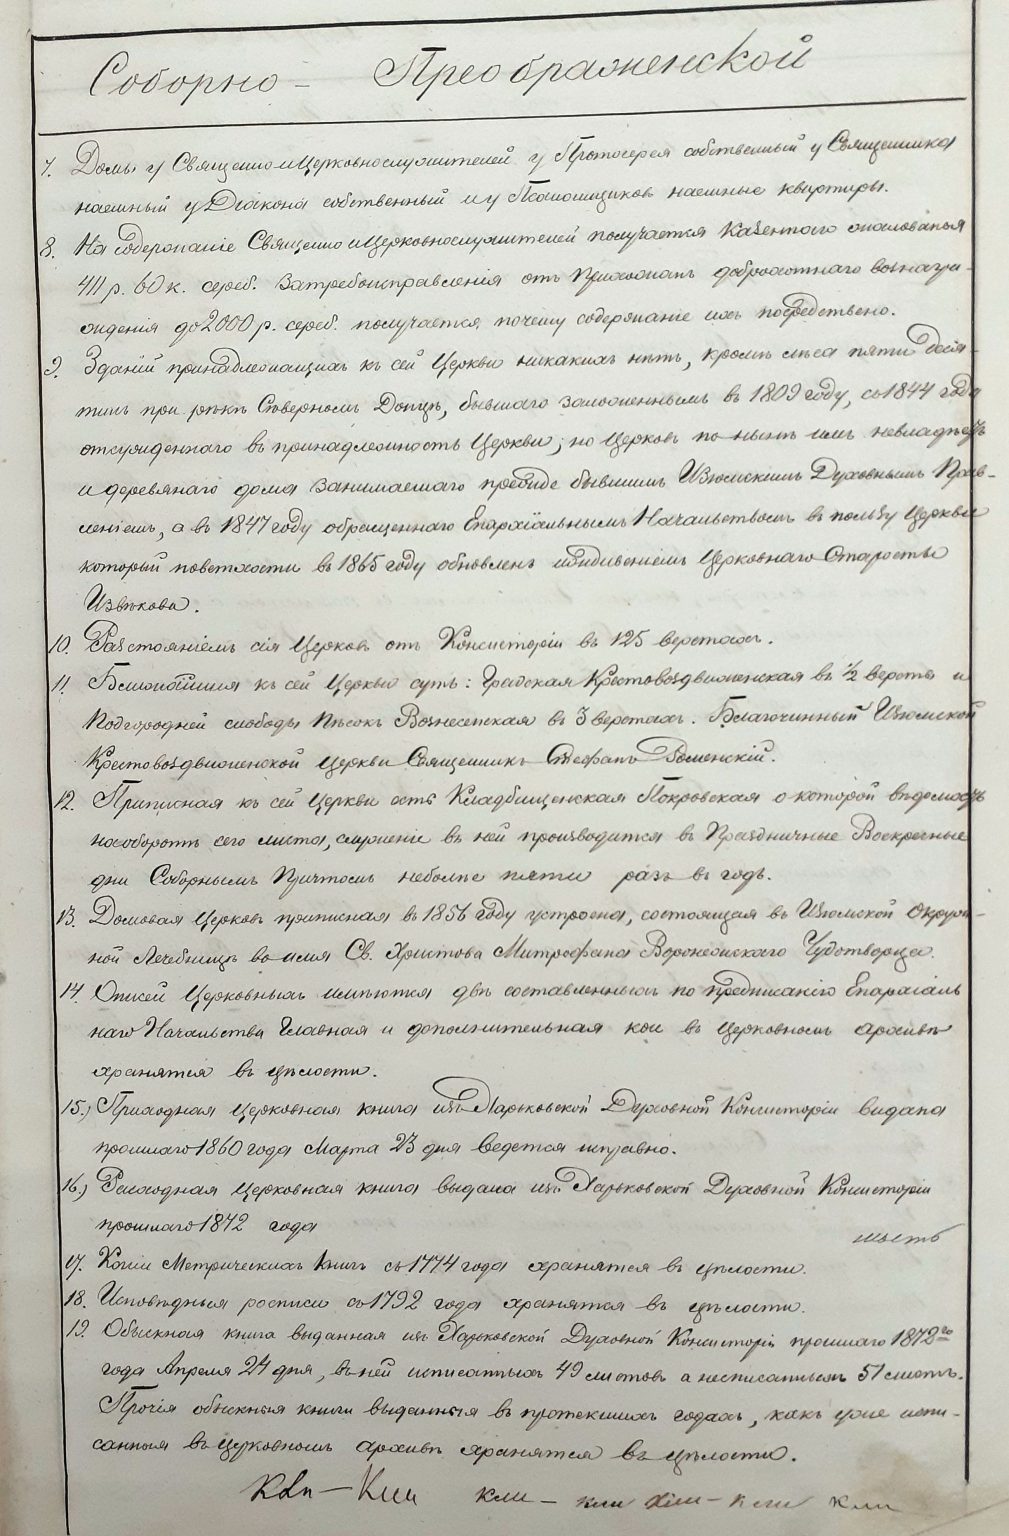 Соборно – Преображенской
7. Домы у Священно и Церковнослужителей у Протоиерея собственный у Священника
наемный у Діакона собственный и у Псаломщиковъ наемные квартиры.
8. На содержаніе Священно и Церковнослужителей получается казеннаго жалованья
411 р. 60 к. сереб. За требоисправленія отъ Прихожанъ доброхотнаго вознагра-
жденія до 2000 р. сереб. получается, почему содержаніе ихъ посредствено.
9. Зданій принадлежащихъ къ сей Церкви никакихъ нѣтъ, кромѣ лѣса пяти деся-
тинъ при рѣкѣ Сѣверномъ Донцѣ, бывшаго заложеннымъ въ 1809 году, съ 1844 года
отсужденнаго въ принадлежность Церкви; но Церковь по нынѣ имъ невладѣетъ
и деревянаго дома занимаемаго прежде бывшимъ Изюмскимъ Духовнымъ Прав-
леніемъ, а въ 1847 году обращеннаго Епархіальнымъ Начальствомъ въ пользу Церкви
который поветхости въ 1865 году обновленъ иждивеніемъ Церковнаго Старосты
Извѣкова.
10. Разстояніемъ сія Церковь отъ Консисторіи въ 125 верстахъ.
11. Ближайшія къ сей Церкви суть: Градская Крестовоздвиженская въ 1/2 версты и
Подгородней слободы Пѣсокъ Вознесенская въ 3 верстахъ. Благочинный Изюмской
Крестовоздвиженской Церкви Священникъ Стефанъ Роменскій.
12. Приписная къ сей Церкви есть Кладбищенская Покровская о которой вѣдомость
на оборотѣ сего листа, служеніе въ ней производится въ Праздничные Воскресные
дни Соборнымъ Причтомъ неболѣе пяти разъ въ годъ.
13. Домовая Церковь приписная въ 1856 году устроена, состоящая въ Изюмской Окруж-
ной Лечебницѣ во имя Св. Христова Митрофана Воронежскаго Чудотворца.
14. Описей Церковныхъ имѣются двѣ составленныхъ по предписанію Епархіаль
наго Начальства Главная и дополнительная кои въ Церковномъ архивѣ
хранятся въ цѣлости.
15.) Приходная Церковная книга изъ Харьковской Духовной Консисторіи видана
прошлаго 1860 года Марта 23 дня ведется исправно.
16.) Расходная Церковная книга выдана изъ Харьковской Духовной Консисторіи
прошлаго 1872 года
17. Копіи Метрическихъ книгъ съ 1774 года хранятся въ цѣлости.
18. Исповѣдныя росписи съ 1792 года хранятся въ цѣлости.
19. Обыскная книга выданная изъ Харьковской Духовной Консисторіи прошлаго 1872го
года Апреля 24 дня, въ ней исписанныхъ 49 листовъ а неисписанныхъ 51 листъ.
Прочія обыскныя книги выданныя въ протекшихъ годахъ, какъ уже испи-
санныя въ Церковномъ архивѣ хранятся въ цѣлости.